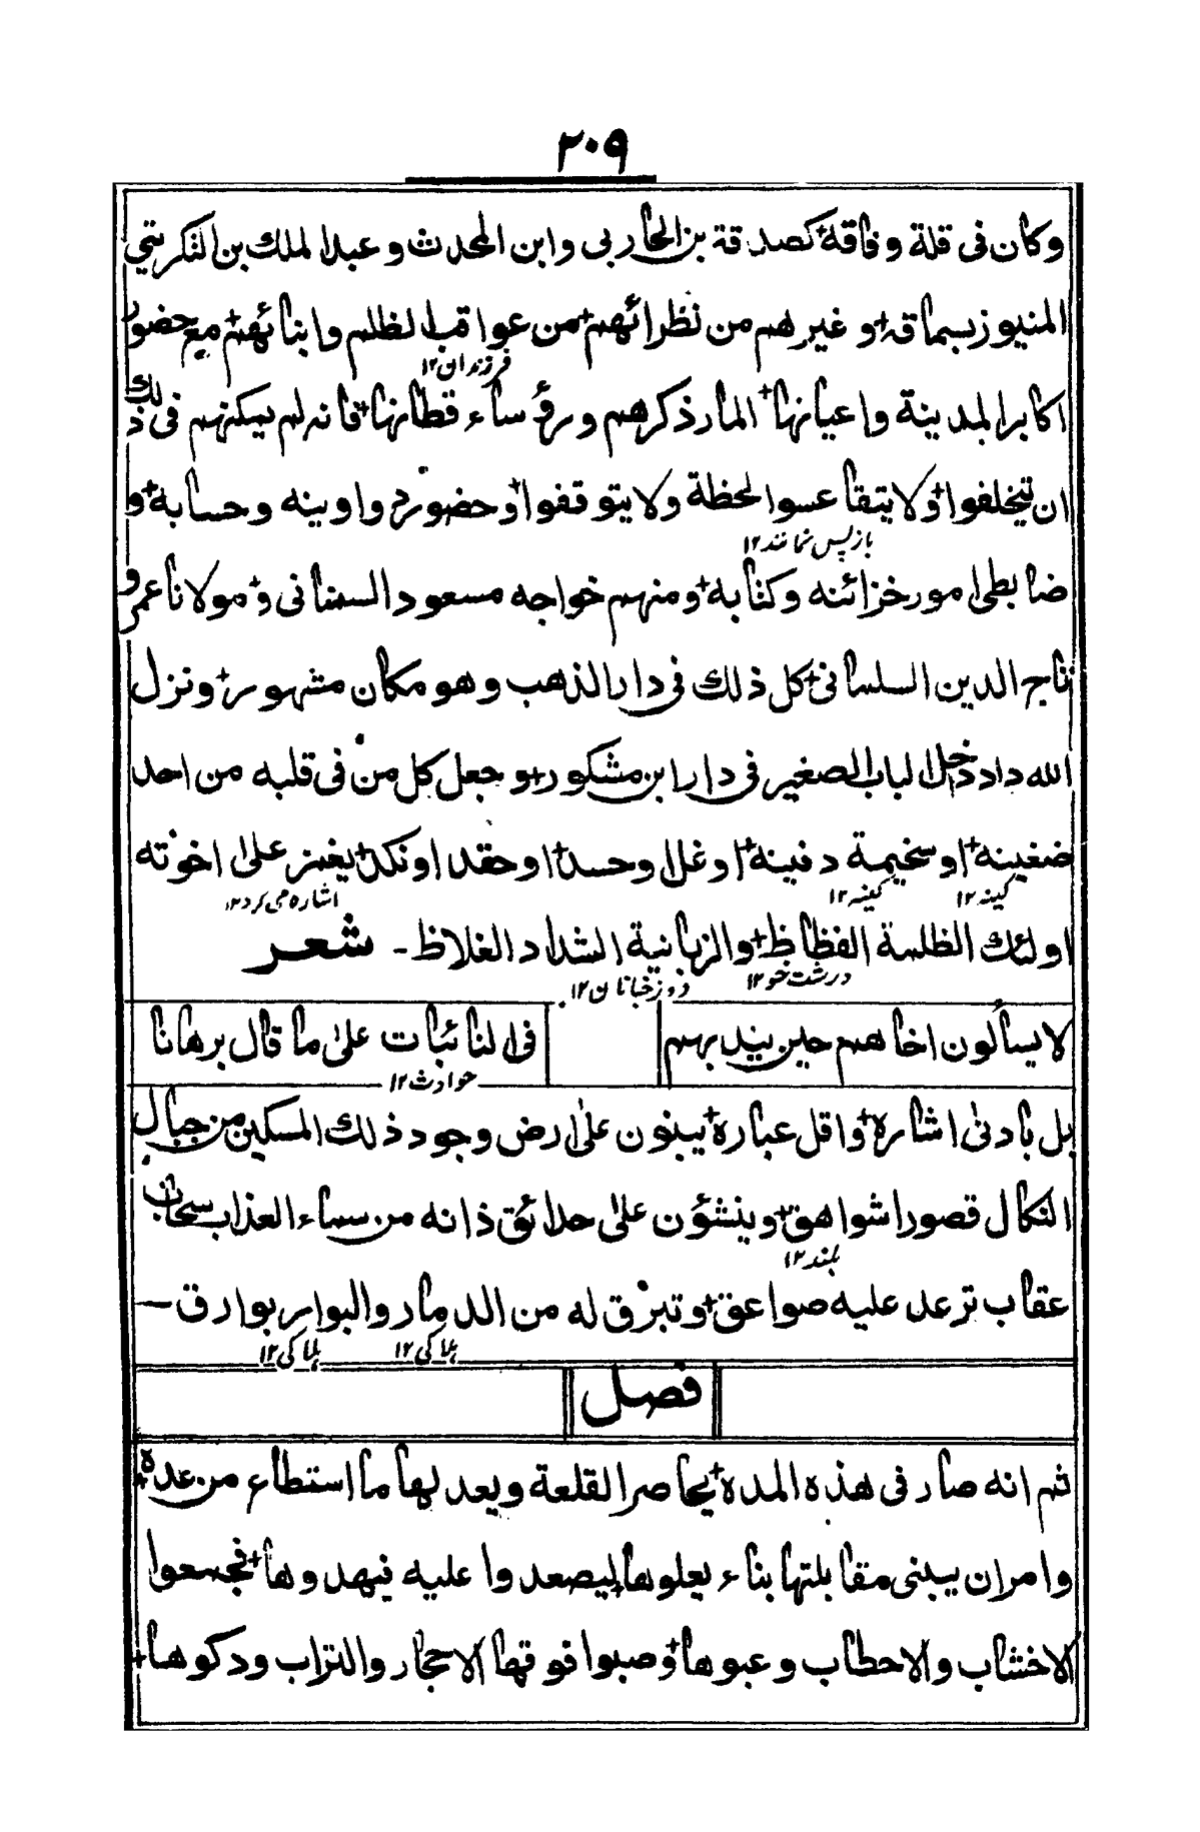 ٢٠٩
وكان فى قلة وفاقة+ كصدقة بن الحاربى وابن المحدث وعبد الملك بن التكريتي
المنبوز بسماقة+ وغيرهم من نظرائهم+ من عواقب الظلم وابنائهم+ مع حضور
فرزندان١٢
اكابر المدينة واعيانها+ المار ذكرهم ورؤساء قطانها+ فانه لم يمكنهم فى ذلك
ان يتخلفوا+ ولا يتقاعسوا لحظة ولا يتوقفوا+ وحضور دواوينه وحسابه+ و
بازپس نمانند١٢
ضابطى امور خزائنه وكتابه+ ومنهم خواجه مسعود السمنانى+ ومولانا عمر و
تاج الدين السلمانى+ كل ذلك فى دار الذهب وهو مكان مشهور+ ونزل
الله داد داخل الباب الصغير فى دار ابن مشكور+ وجعل كل من فى قلبه من احد
ضغينه+ او سخيمة دفينه+ او غل او حسد+ او حقد او نكد+ يغمز على اخوته
كينه١٢ كينه١٢ اشاره مى كرد١٢
اولئك الظلمة الفظاظ+ والزبانية الشداد الغلاظ - شعر
درشت خو١٢ دوزخبانان١٢
لا يسألون اخاهم حين يندبهم فى النائبات على ما قال برهانا
حوادث١٢
بل بادنى اشارة+ واقل عبارة+ يبنون على ارض وجود ذلك المسكين من جبال
النكال قصورا شواهق+ وينشؤن على حدائق ذاته من سماء العذاب سحاب
بلند١٢
عقاب ترعد عليه صواعق+ وتبرق له من الدمار والبوار بوارق —
ہلاکی١٢ ہلاکی١٢
فصل
ثم انه صار فى هذه المدة+ يحاصر القلعة ويعد لها ما استطاع من عدة+
وامر ان يبنى مقابلتها بناء يعلوها+ ليصعدوا عليه فيهدوها+ فجمعوا
الاخشاب والاحطاب وعبوها+ وصبوا فوقها الاحجار والتراب ودكوها+